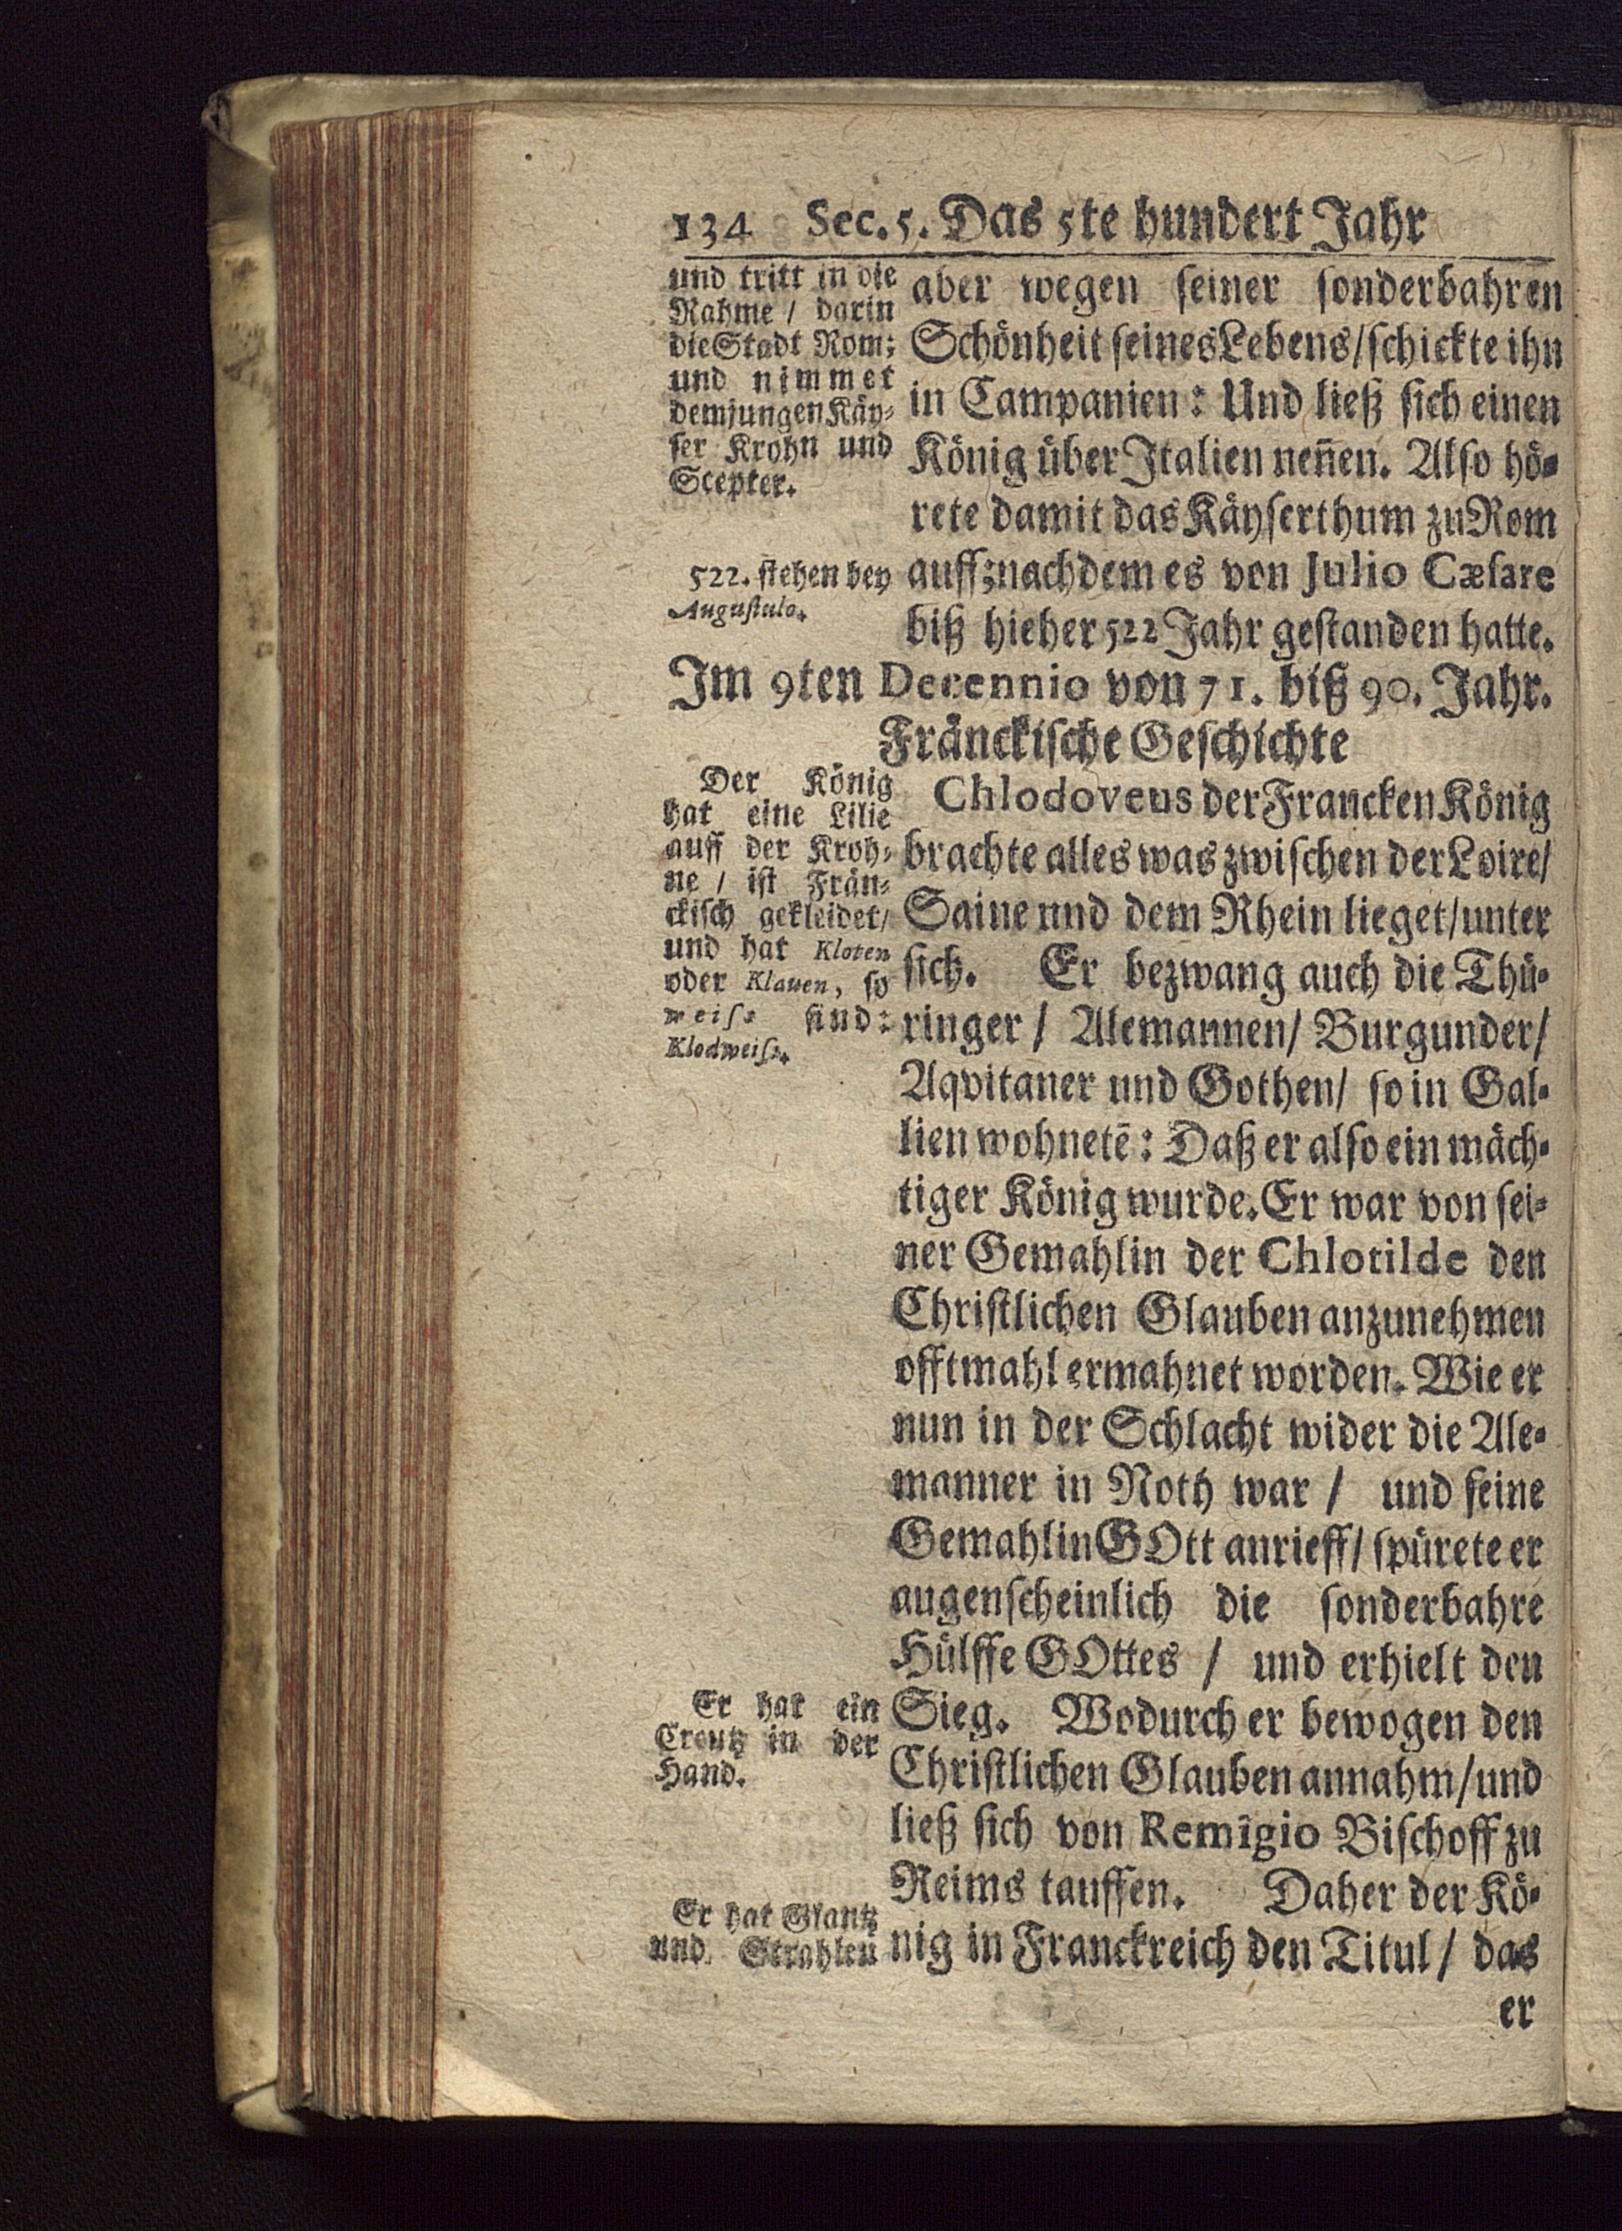 134 Sec. 5. Das 5te hundert Jahr
und tritt in die
Rahme / darin
die Stadt Rom;
und nimmet
dem jungen Käy⸗
ser Krohn und
Scepter.
522. stehen bey
Augustulo.
aber wegen seiner sonderbahren
Schönheit seines Lebens / schickte ihn
in Campanien: Und ließ sich einen
König über Italien neñen. Also hö⸗
rete damit das Käyserthum zu Rom
auff; nachdem es von Julio Cæsare
biß hieher 522 Jahr gestanden hatte.
Im 9ten Decennio von 71. biß 90. Jahr.
Fränckische Geschichte
Der König
hat eine Lilie
auff der Kroh⸗
ne / ist Frän⸗
ckisch gekleidet /
und hat Kloten
oder Klauen, so
weiss sind:
Klodweiss.
Chlodoveus der Francken König
brachte alles was zwischen der Loire /
Saine und dem Rhein lieget / unter
sich. Er bezwang auch die Thü⸗
ringer / Alemannen / Burgunder /
Aqvitaner und Gothen / so in Gal⸗
lien wohnetē: Daß er also ein mäch⸗
tiger König wurde. Er war von sei⸗
ner Gemahlin der Chlotilde den
Christlichen Glauben anzunehmen
offtmahl ermahnet worden. Wie er
nun in der Schlacht wider die Ale⸗
manner in Noth war / und seine
Gemahlin GOtt anrieff / spürete er
augenscheinlich die sonderbahre
Hülffe GOttes / und erhielt den
Er hat ein
Creutz in der
Hand.
Sieg. Wodurch er bewogen den
Christlichen Glauben annahm / und
ließ sich von Remigio Bischoff zu
Reims tauffen. Daher der Kö⸗
nig in Franckreich den Titul / das
Er hat Glantz
und Strahlen
er